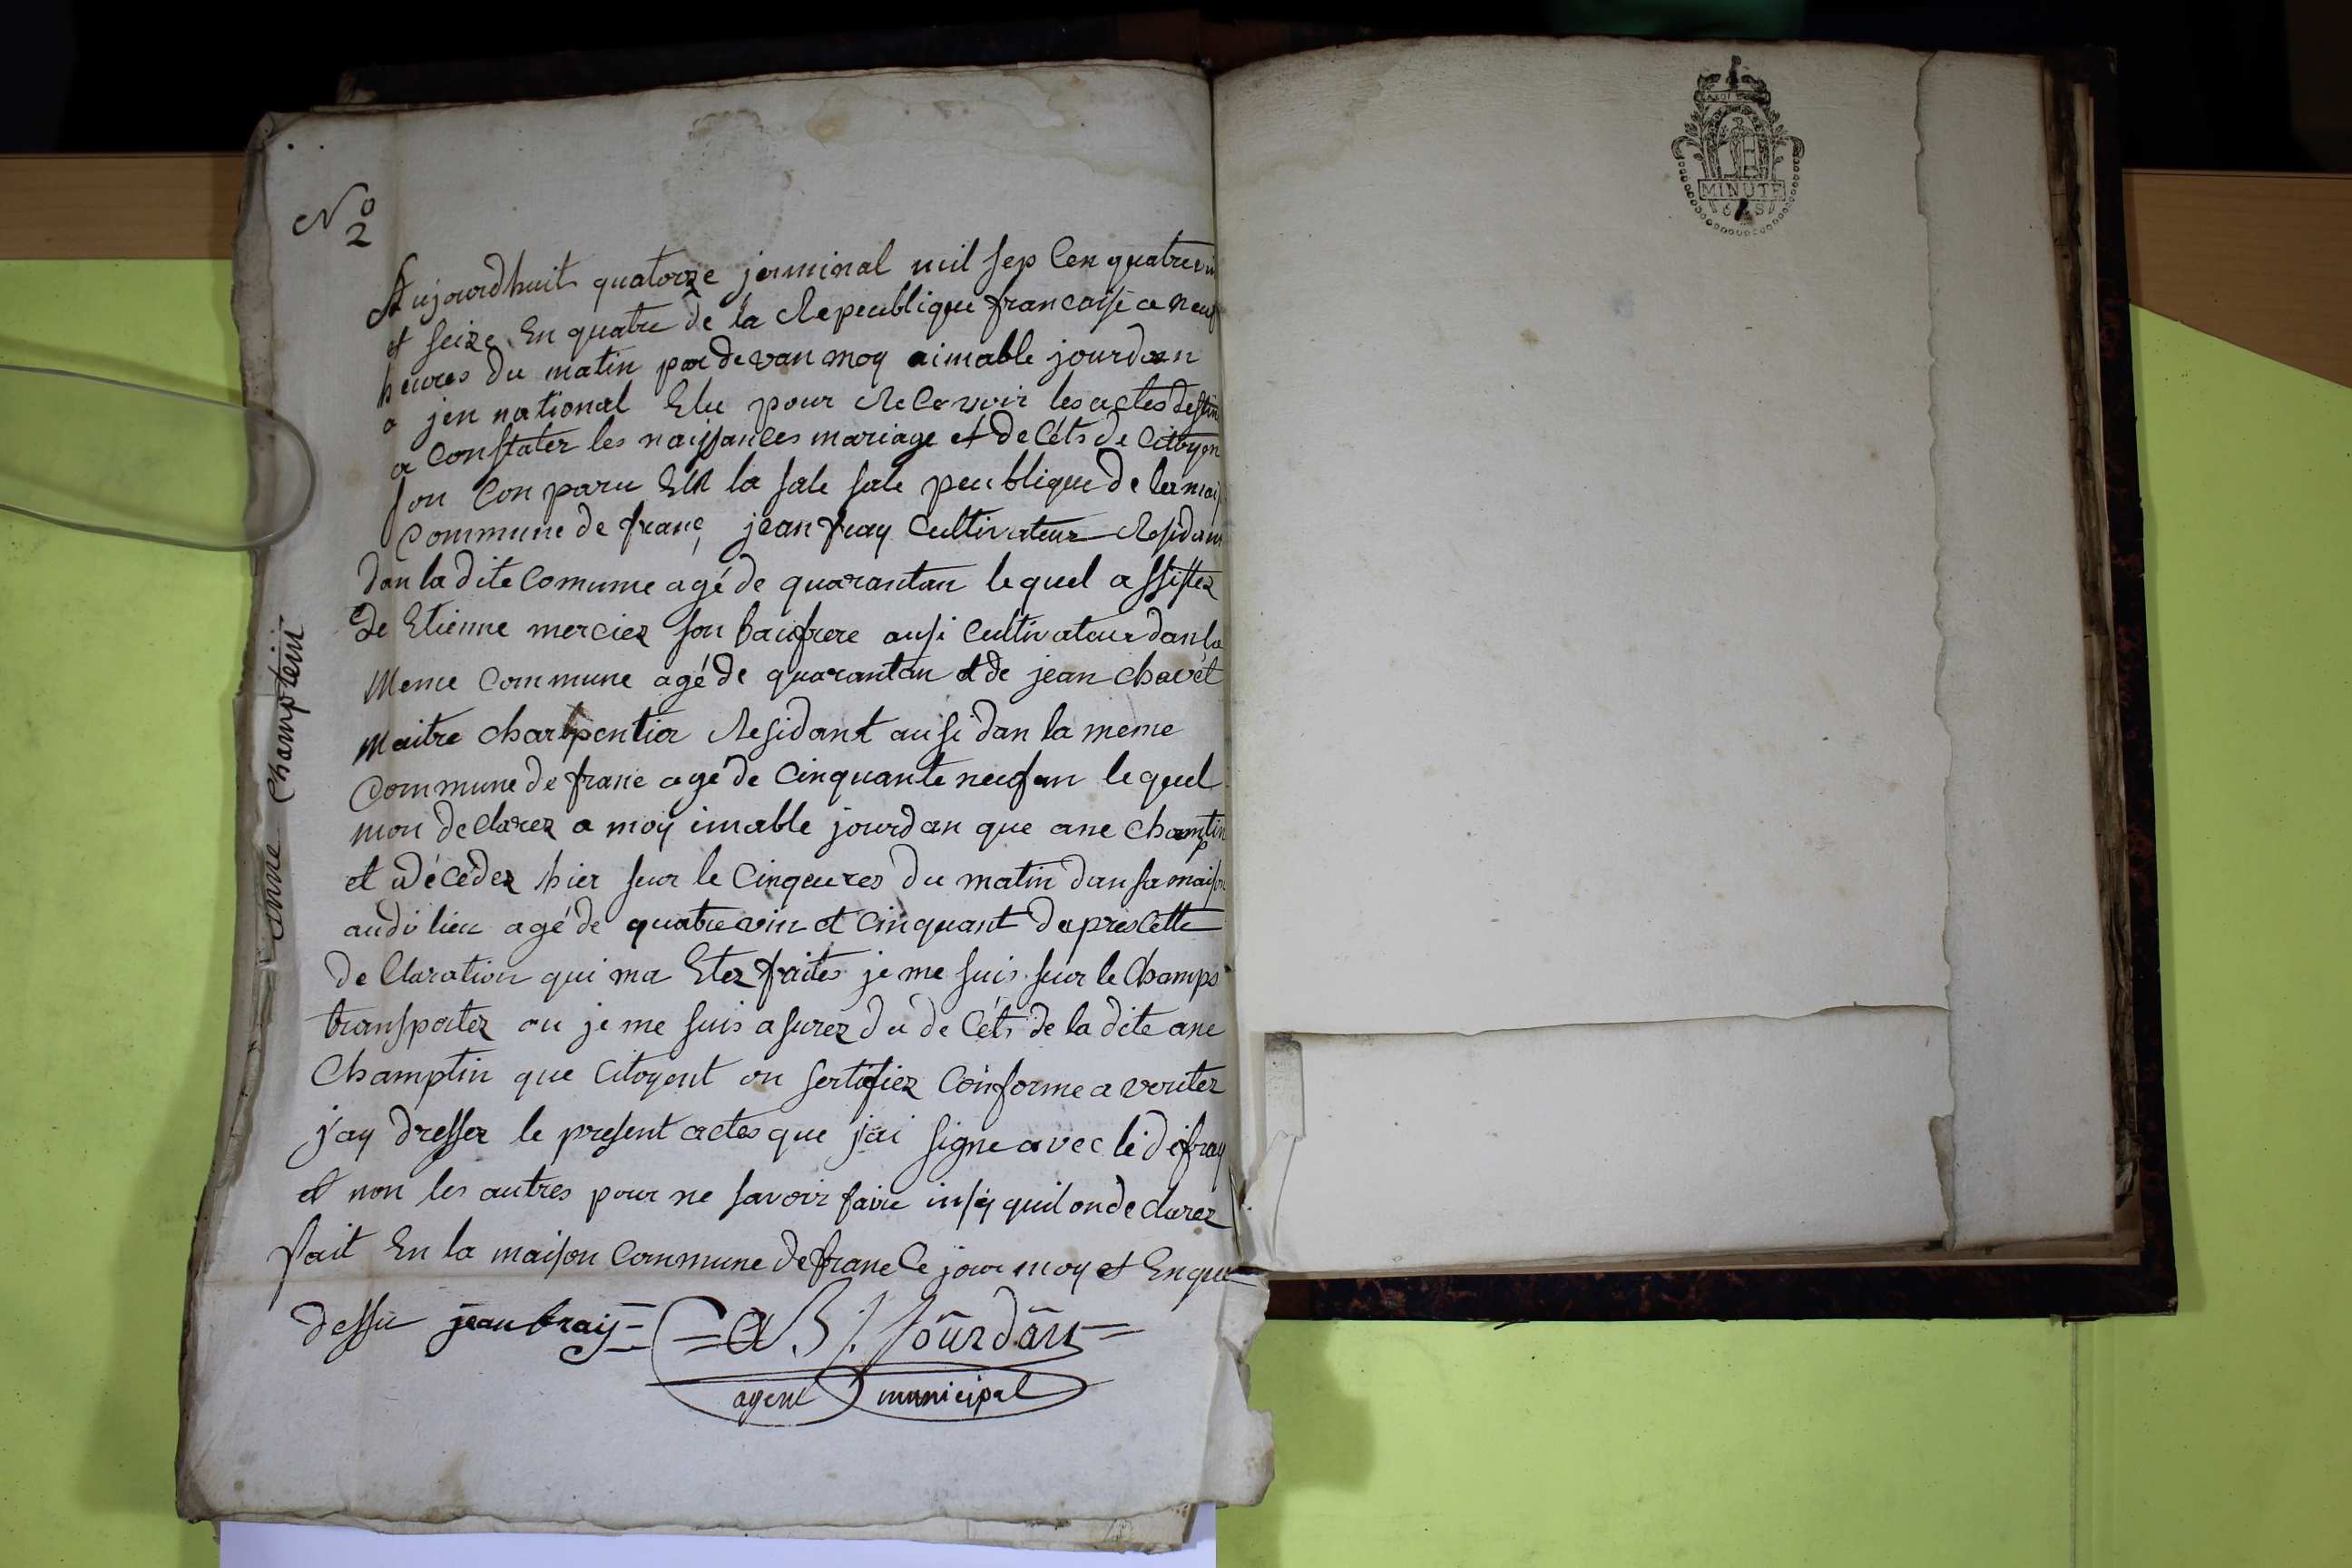 No
2
Aujourdhuit quatorze jerminal mil sep Cen quatrevin
et seize En quatre de la Republique francaise a neuf
heures du matin par devan moy aimable jourdan
a jen national Elu pour Recevoir les actes destine
a Constater les naissances mariage et de Céts de Citoyen
son Con paru En la sale sale peublique de la mais
Commune de franc jean fray Cultivateur Residant
dan la dite Comune agé de quarantan le quel assistez
de Etienne mercier son baufrere ausi Cultivateur dan la
meme Commune agé de quarantan et de jean Chavet
maitre Charpentier Residant ausi dan la meme
Commune de franc agé de Cinquante neufan le quel
mon declarez a moy imable jourdan que ane Champtin
et décédez hier sur le Cinqeures du matin dan sa maison
audi lieu agé de quatrevin et Cinquant dapres Cette
de Claration qui ma Etez faites je me suis sur le Champs
transportez ou je me suis asurez du de Céts de la dite ane
Champtin que Citoyent on sertifiez Conforme a veritez
j'ay dresser le present actes que j'ai signe avec le di fray
et non les autres pour ne savoir faire insy quil on de clarez
fait En la maison Commune de franc le jour moy et En que
dessu jean fray
a B Jourdan
agent municipal
anne Champtein
MINUTE